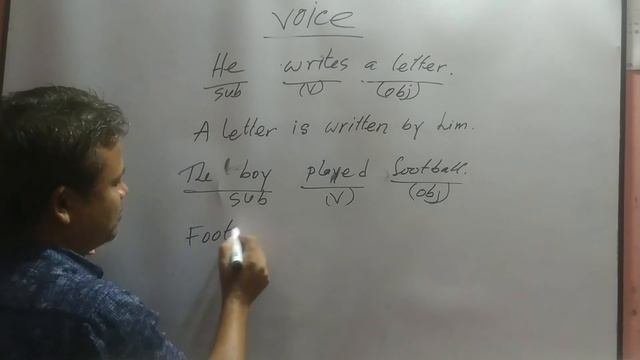 voice
He writes a letter.
sub (v) (obj)
A letter is written by him.
The boy played football.
sub (v) (obj)
Foot